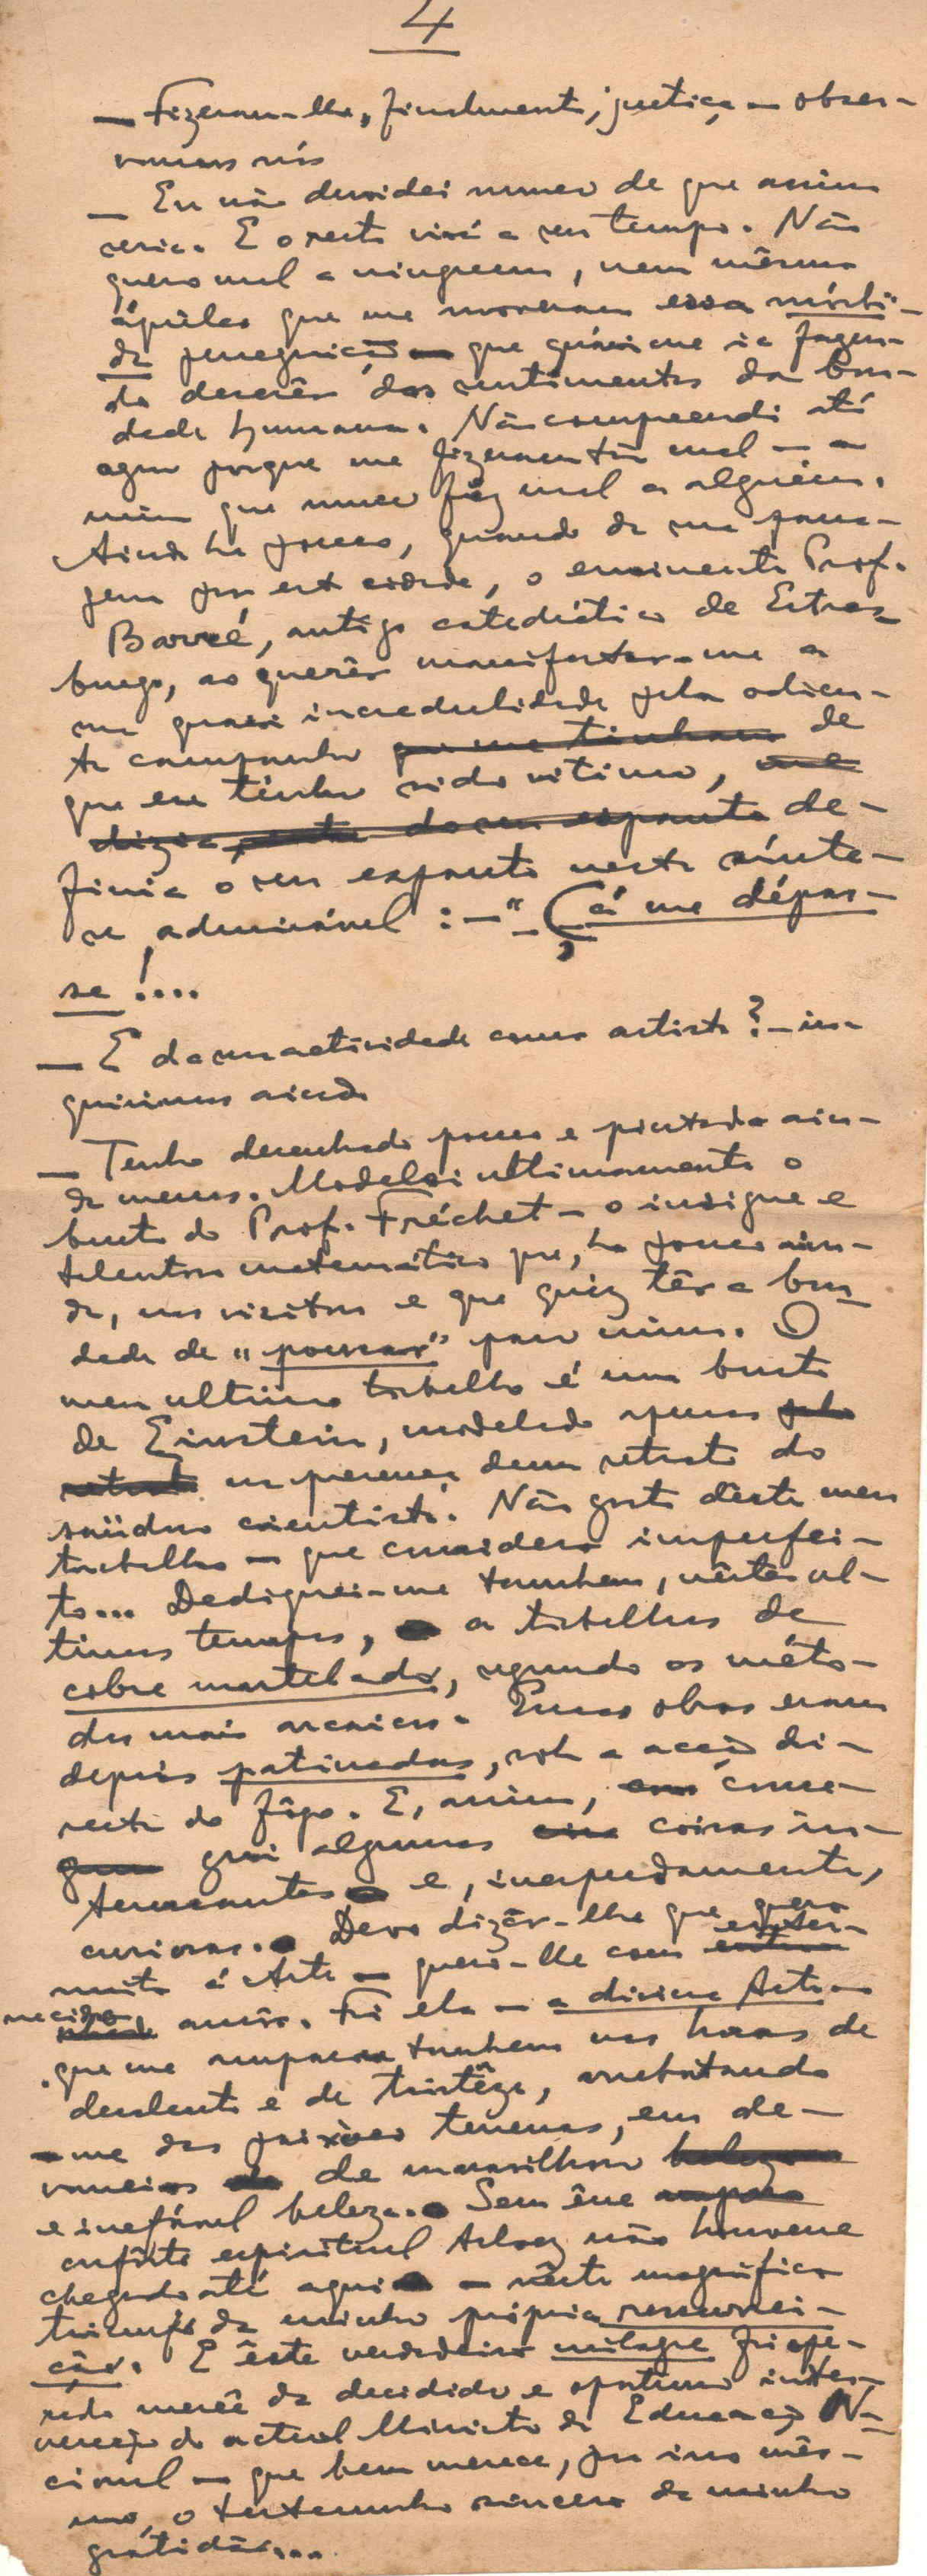 4
— Fizeram-lhe, finalmente, justiça — obser-
vamos nós
— Eu não duvidei nunca de que assim
seria. E o resto virá a seu tempo. Não
quero mal a ninguem, nem mêsmo
áqueles que me moveram essa mórbi-
da perseguição — que quási me ia fazen-
do descrêr dos sentimentos da bon-
dade humana. Não compreendi até
agora porque me fizeram tanto mal — a
mim que nunca fiz mal a alguém.
Ainda ha pouco, quando da sua passa-
gem por esta cidade, o eminente Prof.
Barré, antigo catedrático de Estras-
burgo, ao querêr manifestar-me a
sua quasi incredulidade pela odien-
ta campanha que me tinham de
que eu tinha sido vitima, me
dizia, do seu espanto de-
finia o seu espanto nesta sínte-
se admirável: — "Çá me dépas-
se!....
— E da sua actividade como artista? — in-
quirimos ainda
— Tenho desenhado pouco e pintado ain-
da menos. Modelei ultimamente o
busto do Prof. Fréchet — o insigne e
talentoso matemático que, ha pouco ain-
da, nos visitou e que quiz têr a bon-
dade de "possar" para mim. O
meu ultimo trabalho é um busto
de Einstein, modelado apenas pelo
retrato na presença dum retrato do
saüdoso cientista. Não gosto dêste meu
trabalho — que considero imperfei-
to... Dediquei-me tambem, nêstes ul-
timos tempos, a trabalhos de
cobre martelado, segundo os méto-
dos mais arcaicos. Essas obras eram
depois patinadas, sob a acção di-
recta do fôgo. E, assim, conse-
gui algumas coisas in-
teressantes e, inesperadamente,
curiosas. Devo dizêr-lhe que quero
muito á Arte — quero-lhe com enter-
necido amôr. Foi ela — a divina Arte —
que me amparou tambem nas horas de
desalento e de tristêza, arrebatando
-me das paixões terrenas, em de-
vaneios de maravilhosa beleza
e inefável beleza. Sem êsse amparo
confôrto espiritual talvez não houvesse
chegado até aqui — a nêste magnífico
triunfo da minha própria ressurrei-
ção. E êste verdadeiro milagre foi ope-
rado mercê da decidida e oportuna inter-
venção do actual Ministro da Educação Na-
cional — que bem merece, por isso mês-
mo, o testemunho sincero da minha
gratidão....